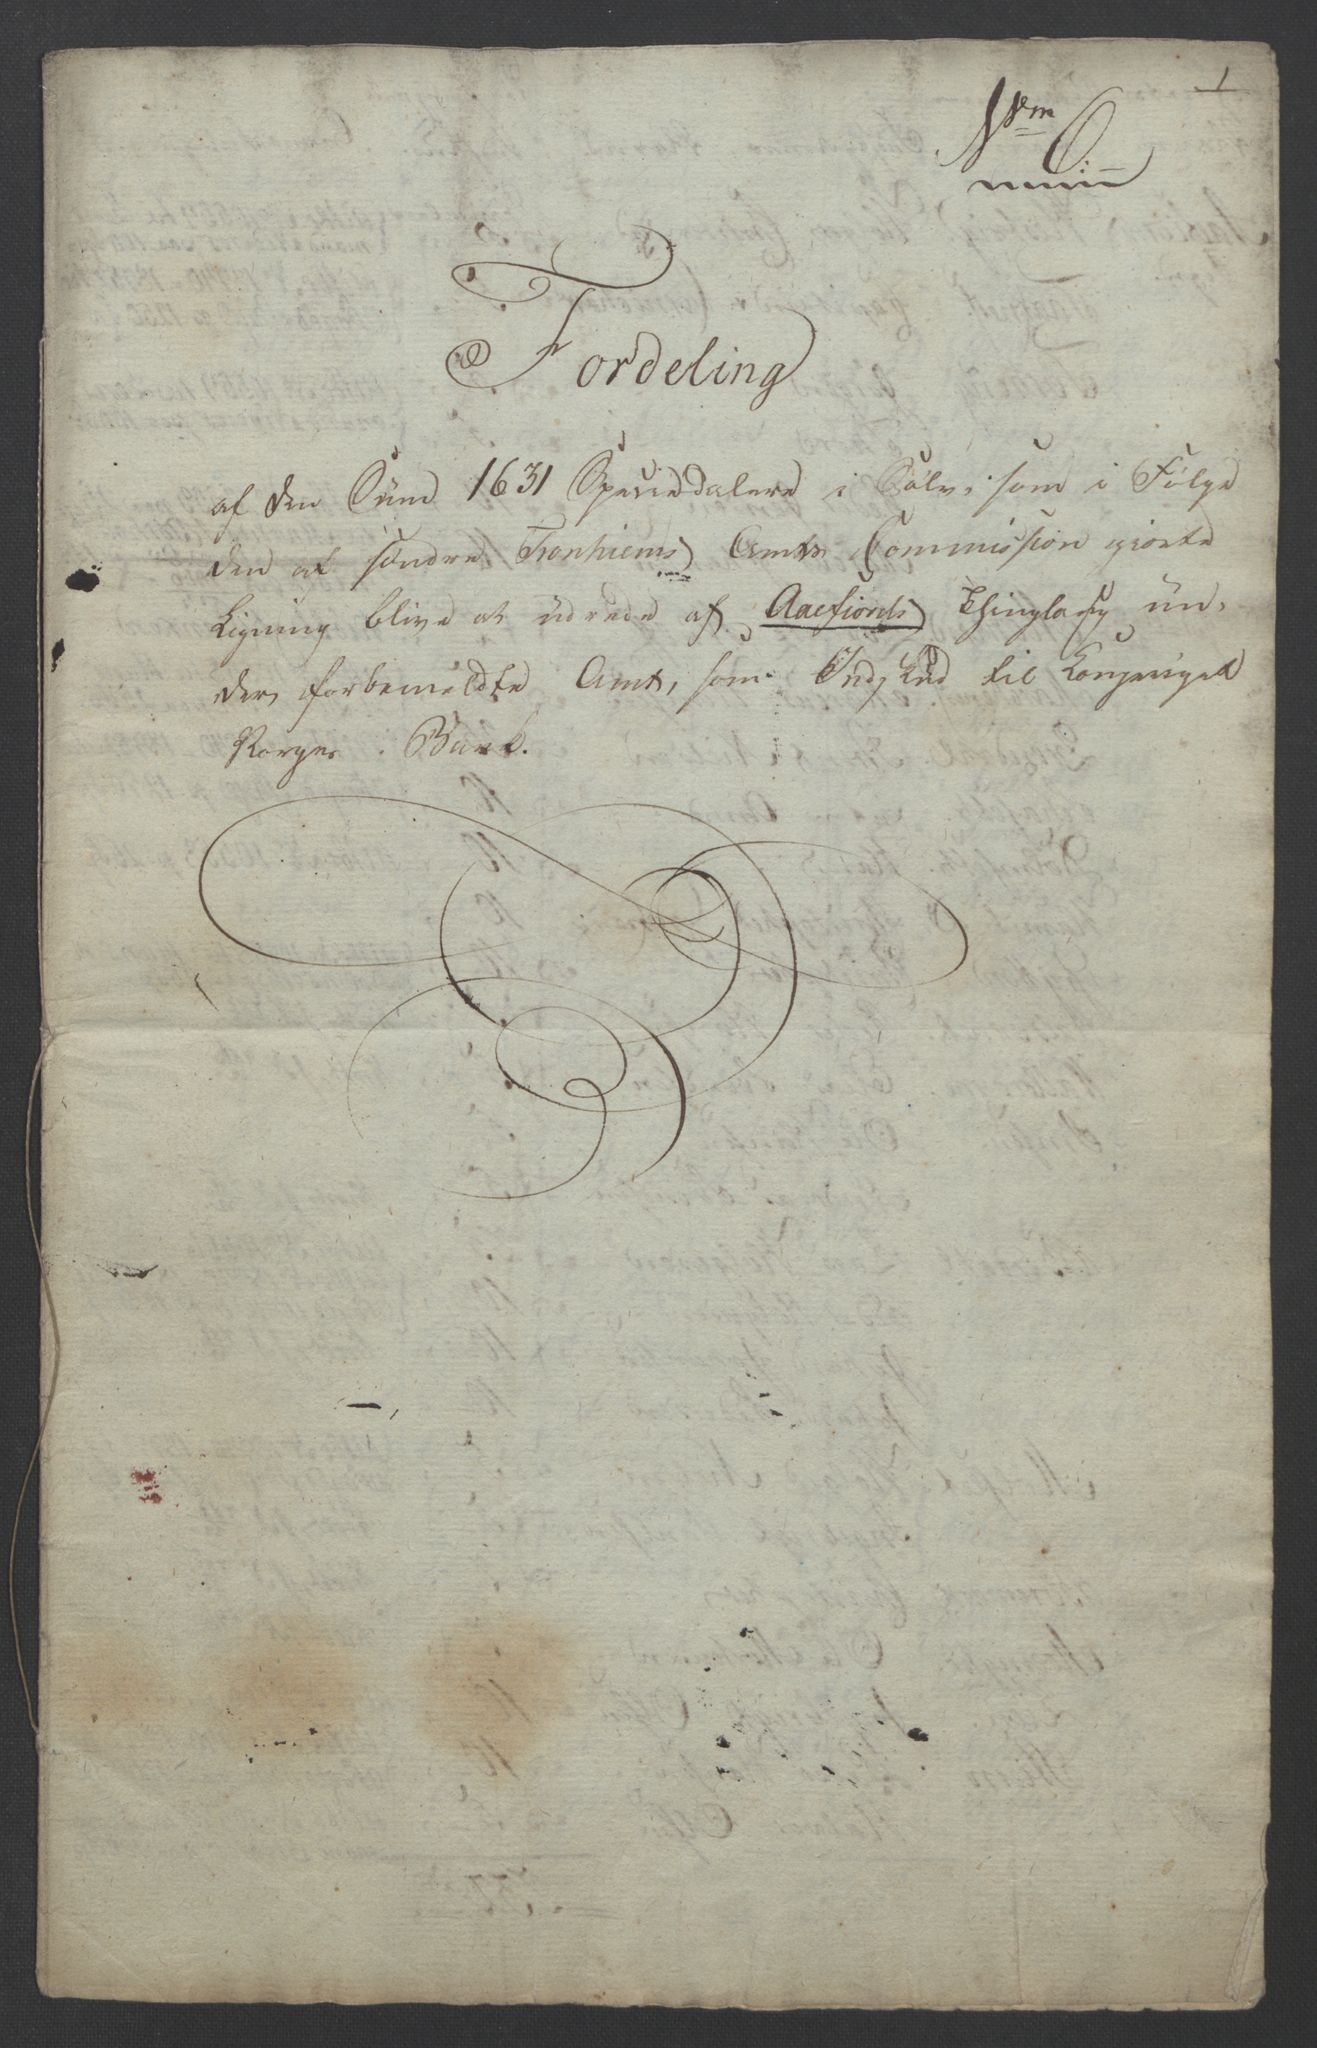 1
Fordeling
af den Sum 1631 Speciedalere i Sølv, som i Følge
den af søndre Tronhiems Amts Commission giorte
Ligning bliver at udrede af Aaefiords Thinglaug un-
der forbemeldte Amt, som Indskud til Kongeriget
Norges Bank.